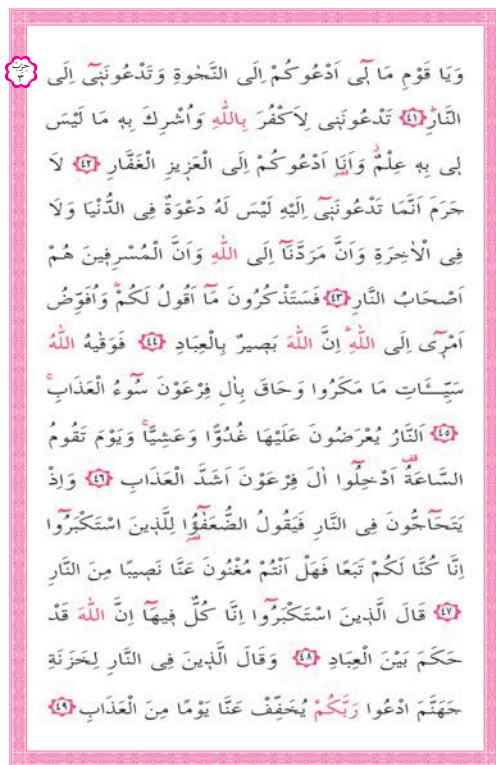 حزب
٣
وَيَا قَوْمِ مَا لِٓى اَدْعُوكُمْ اِلَى النَّجٰوةِ وَتَدْعُونَنٖٓى اِلَى
النَّارِؕ ﴿٤١﴾ تَدْعُونَنٖى لِاَكْفُرَ بِاللّٰهِ وَاُشْرِكَ بِهٖ مَا لَيْسَ
لٖى بِهٖ عِلْمٌؗ وَاَنَا۬ اَدْعُوكُمْ اِلَى الْعَزٖيزِ الْغَفَّارِ ﴿٤٢﴾ لَا
جَرَمَ اَنَّمَا تَدْعُونَنٖٓى اِلَيْهِ لَيْسَ لَهُ دَعْوَةٌ فِى الدُّنْيَا وَلَا
فِى الْاٰخِرَةِ وَاَنَّ مَرَدَّنَٓا اِلَى اللّٰهِ وَاَنَّ الْمُسْرِفٖينَ هُمْ
اَصْحَابُ النَّارِ ﴿٤٣﴾ فَسَتَذْكُرُونَ مَٓا اَقُولُ لَكُمْؕ وَاُفَوِّضُ
اَمْرٖٓى اِلَى اللّٰهِؕ اِنَّ اللّٰهَ بَصٖيرٌ بِالْعِبَادِ ﴿٤٤﴾ فَوَقٰيهُ اللّٰهُ
سَيِّـَٔاتِ مَا مَكَرُوا وَحَاقَ بِاٰلِ فِرْعَوْنَ سُٓوءُ الْعَذَابِۚ
﴿٤٥﴾ اَلنَّارُ يُعْرَضُونَ عَلَيْهَا غُدُوًّا وَعَشِيًّاۚ وَيَوْمَ تَقُومُ
السَّاعَةُ۠ اَدْخِلُٓوا اٰلَ فِرْعَوْنَ اَشَدَّ الْعَذَابِ ﴿٤٦﴾ وَاِذْ
يَتَحَٓاجُّونَ فِى النَّارِ فَيَقُولُ الضُّعَفٰٓؤُ۬ا لِلَّذٖينَ اسْتَكْبَرُٓوا
اِنَّا كُنَّا لَكُمْ تَبَعًا فَهَلْ اَنْتُمْ مُغْنُونَ عَنَّا نَصٖيبًا مِنَ النَّارِ
﴿٤٧﴾ قَالَ الَّذٖينَ اسْتَكْبَرُٓوا اِنَّا كُلٌّ فٖيهَٓا اِنَّ اللّٰهَ قَدْ
حَكَمَ بَيْنَ الْعِبَادِ ﴿٤٨﴾ وَقَالَ الَّذٖينَ فِى النَّارِ لِخَزَنَةِ
جَهَنَّمَ ادْعُوا رَبَّكُمْ يُخَفِّفْ عَنَّا يَوْمًا مِنَ الْعَذَابِ ﴿٤٩﴾